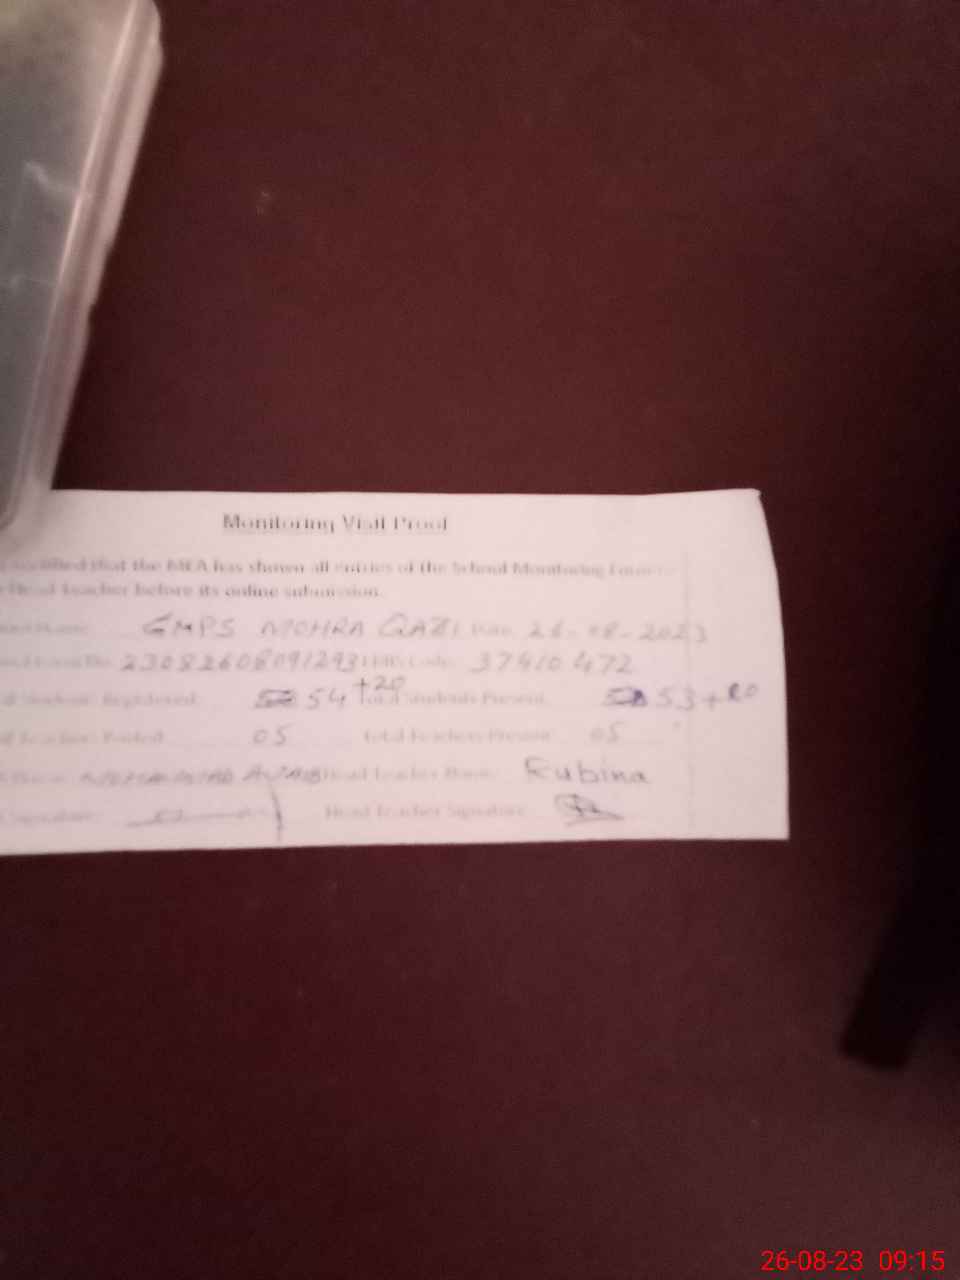 Monitoring Visit Proof
certified that the MEA has shown all entries of the School Monitoring Form to
Head Teacher before its online submission.
Name GMPS MOHRA QAZI Date 26-08-2023
37410472
Students Registered 54 +20 Total Students Present 53+20
Teachers Posted 05 Total Teachers Present 05
MUHAMMAD Head Teacher Name Rubina
Signature Head Teacher Signature
26-08-23 09:15